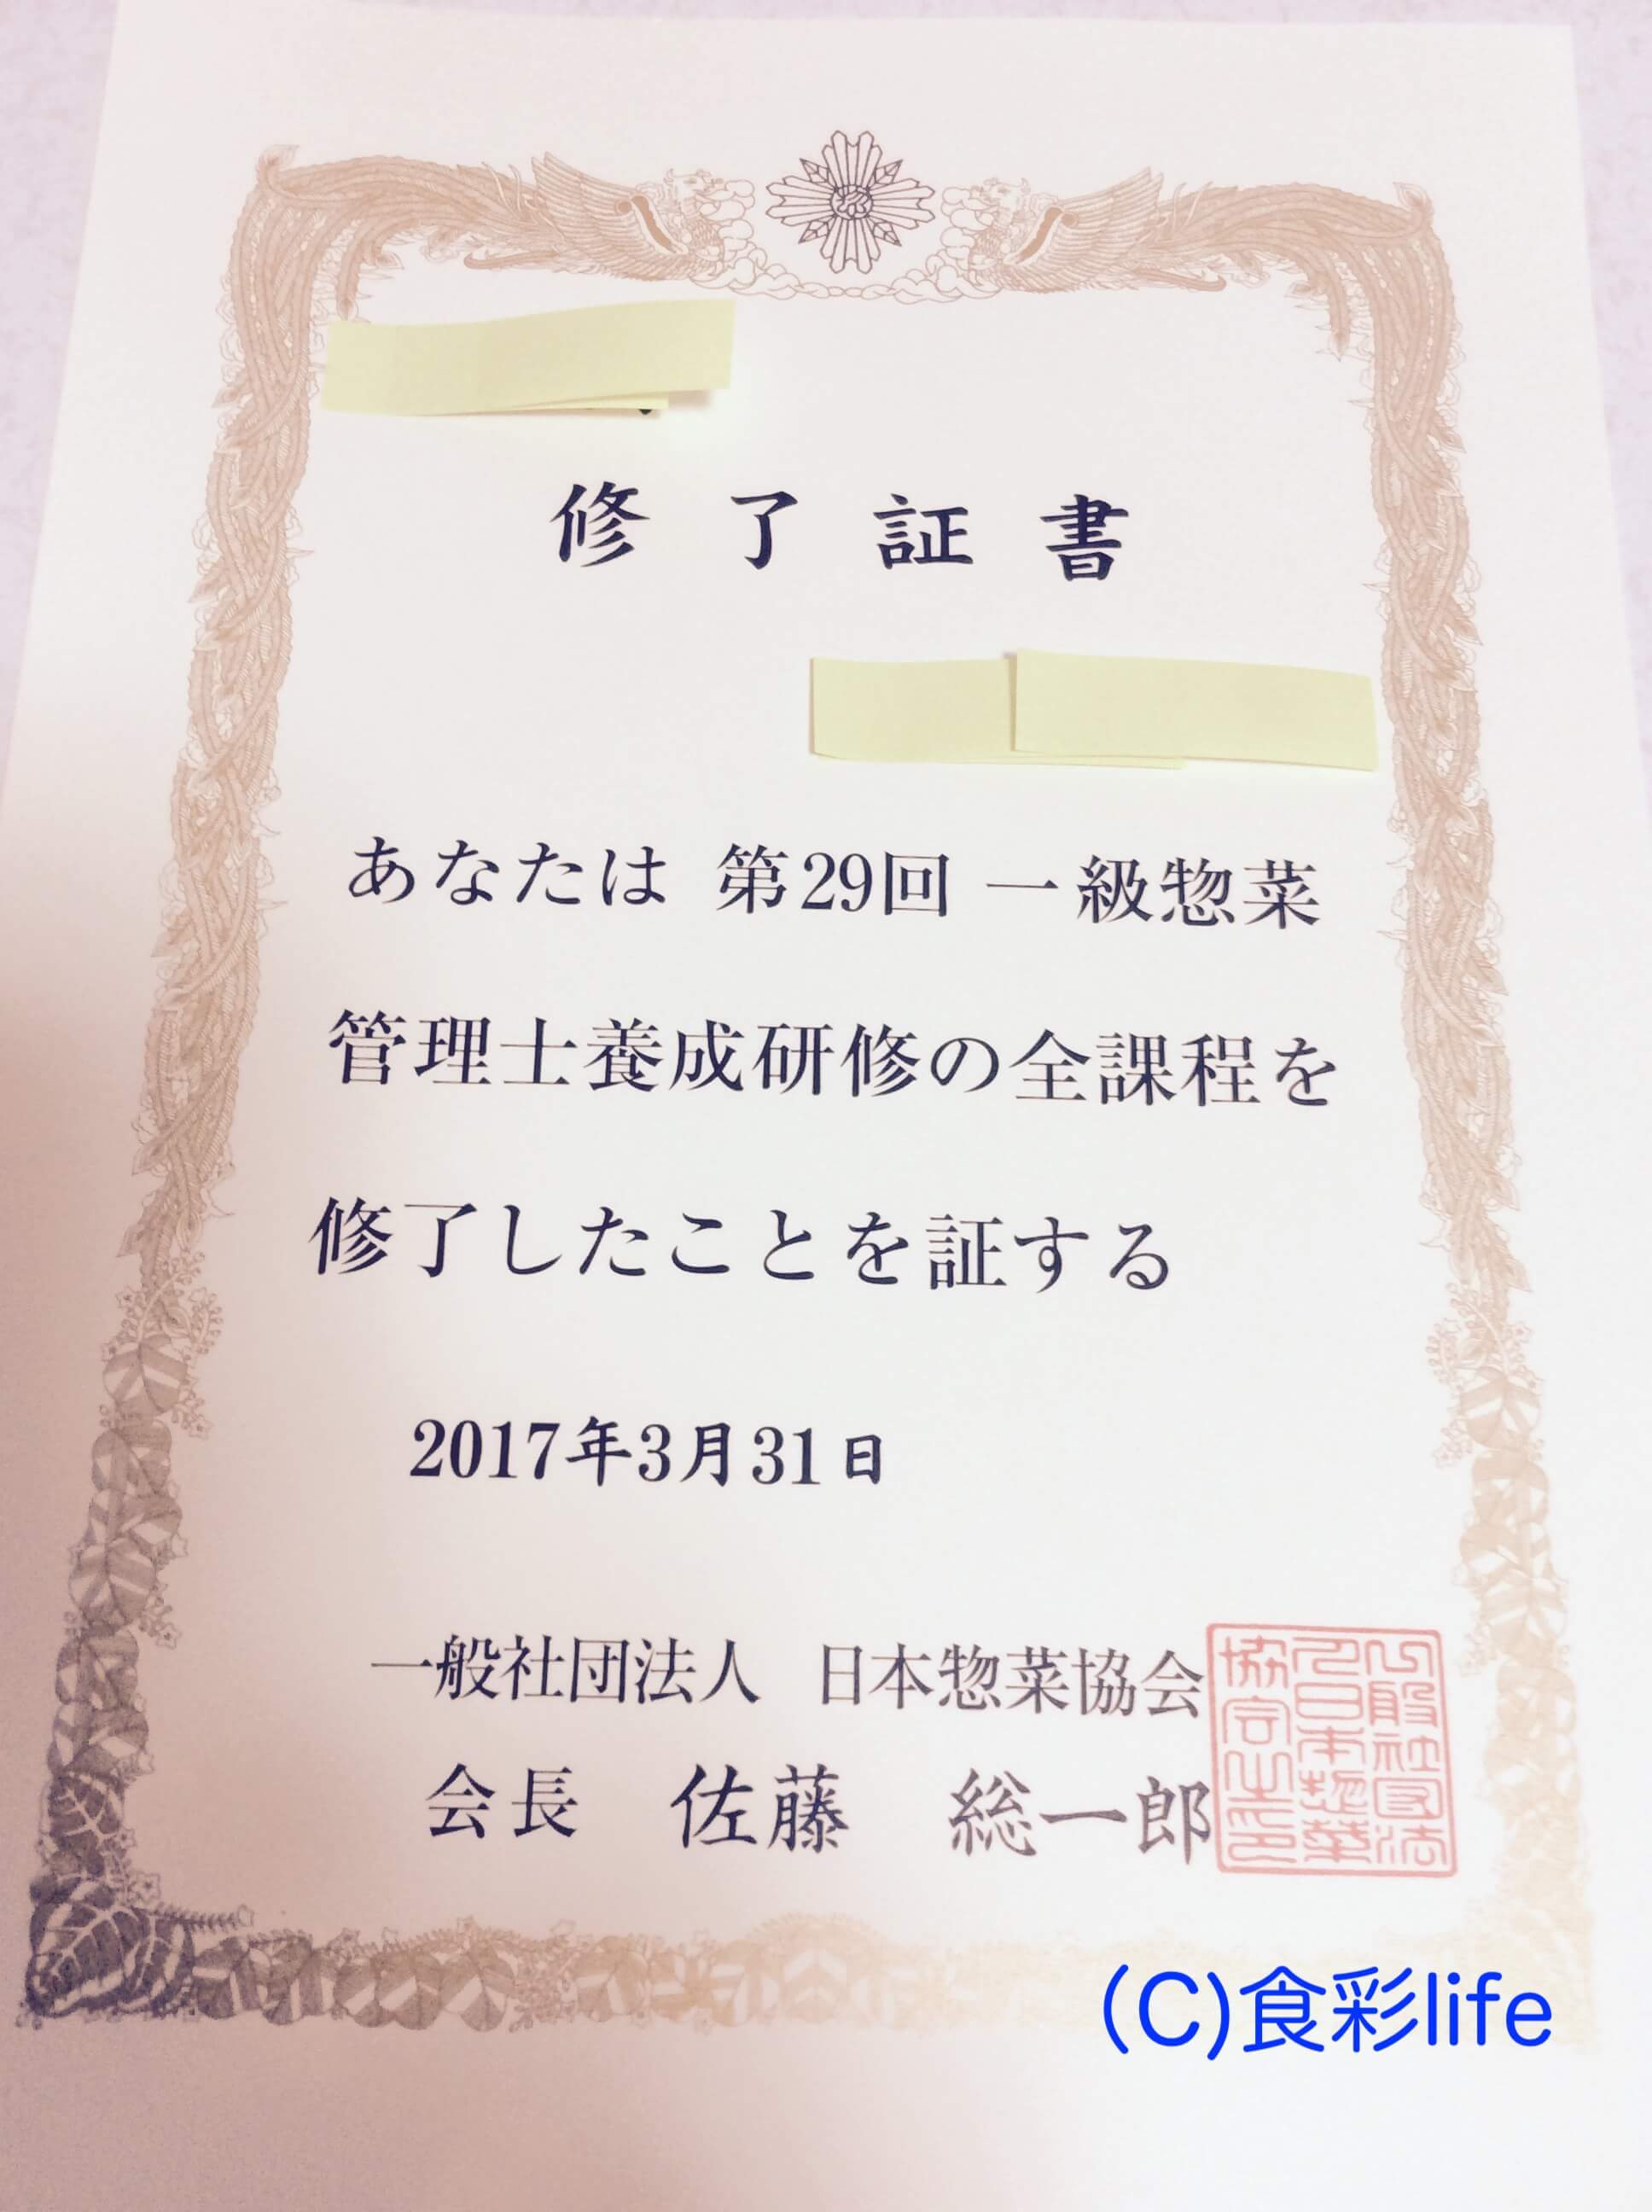 修了証書
あなたは 第29回 一級惣菜
管理士養成研修の全課程を
修了したことを証する
2017年3月31日
一般社団法人 日本惣菜協会
会長 佐藤 総一郎
(C)食彩life